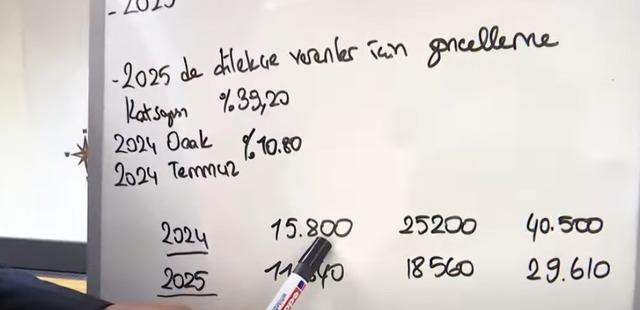 - 2025
- 2025 de dilekçe verenler için güncelleme
Katsayısı %39,20
2024 Ocak %10.80
2024 Temmuz
2024 15.800 25200 40.500
2025 18560 29.610